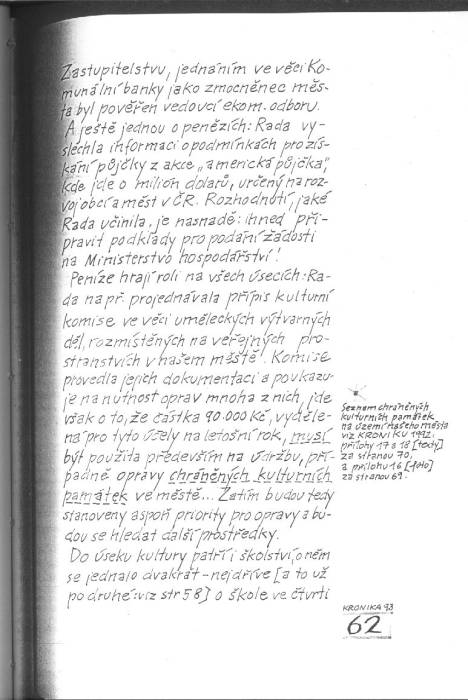 Zastupitelstvu, jednáním ve věci Ko-
munální banky jako zmocněnec měs-
ta byl pověřen vedoucí ekom. odboru.
A ještě jednou o penězích: Rada vy-
slechla informaci o podmínkách pro zís-
kání půjčky z akce „americká půjčka",
kde jde o milión dolarů, určený na roz-
voj obcí a měst v ČR. Rozhodnutí, jaké
Rada učinila, je nasnadě: ihned při-
pravit podklady pro podání žádosti
na Ministerstvo hospodářství!
Peníze hrají roli na všech úsecích: Ra-
da např. projednávala přípis kulturní
komise ve věci uměleckých výtvarných
děl, rozmístěných na veřejných pro-
stranstvích v našem městě. Komise
provedla jejich dokumentaci a poukazu-
je na nutnost oprav mnoha z nich, jde
však o to, že částka 90.000 Kč, vyděle-
ná pro tyto účely na letošní rok, musí
být použita především na údržbu, pří-
padně opravy chráněných kulturních
památek ve městě... Zatím budou tedy
stanoveny aspoň priority pro opravy a bu-
dou se hledat další prostředky.
Do úseku kultury patří i školství, o něm
se jednalo dvakrát - nejdříve [a to už
po druhé: viz str 58] o škole ve čtvrti
Seznam chráněných
kulturních památek
na území našeho města
viz KRONIKU 1992,
přílohy 17 a 18 [texty]
za stranou 70,
a přílohu 16 [foto]
za stranou 69.
KRONIKA 93
62